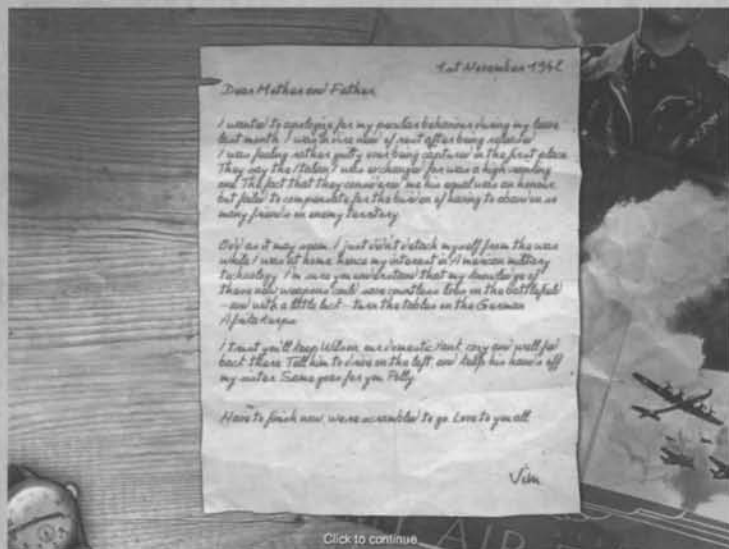 1st November 1942
Dear Mother and Father
I wanted to apologize for my peculiar behaviour during my leave
last month. I was in dire need of rest after being released
I was feeling rather guilty over being captured in the first place
They say the Italian I was exchanged for was a high ranking
one. The fact that they considered me his equal was an honour,
but failed to compensate for the burden of having to abandon so
many friends in enemy territory
Odd as it may seem, I just didn't detach myself from the war
while I was at home hence my interest in American military
technology. I'm sure you understand that my knowledge of
these new weapons could save countless lives on the battlefield
- and with a little luck - turn the tables on the German
Afrika Korps
I trust you'll keep Wilson, our domestic Yank, cosy and well fed
back there. Tell him to drive on the left, and keep his hands off
my sister. Same goes for you Polly
Have to finish now, we're scrambled to go. Love to you all
AIR
Click to continue